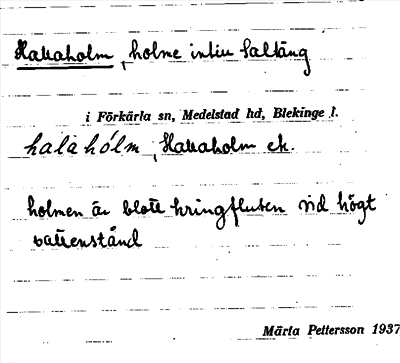 Hallaholm, holme intill Saltäng
i Förkärla sn, Medelstad hd, Blekinge l.
halahólm, Hallaholm ek.
holmen är blott kringfluten vid högt
vattenstånd
Märta Pettersson 1937